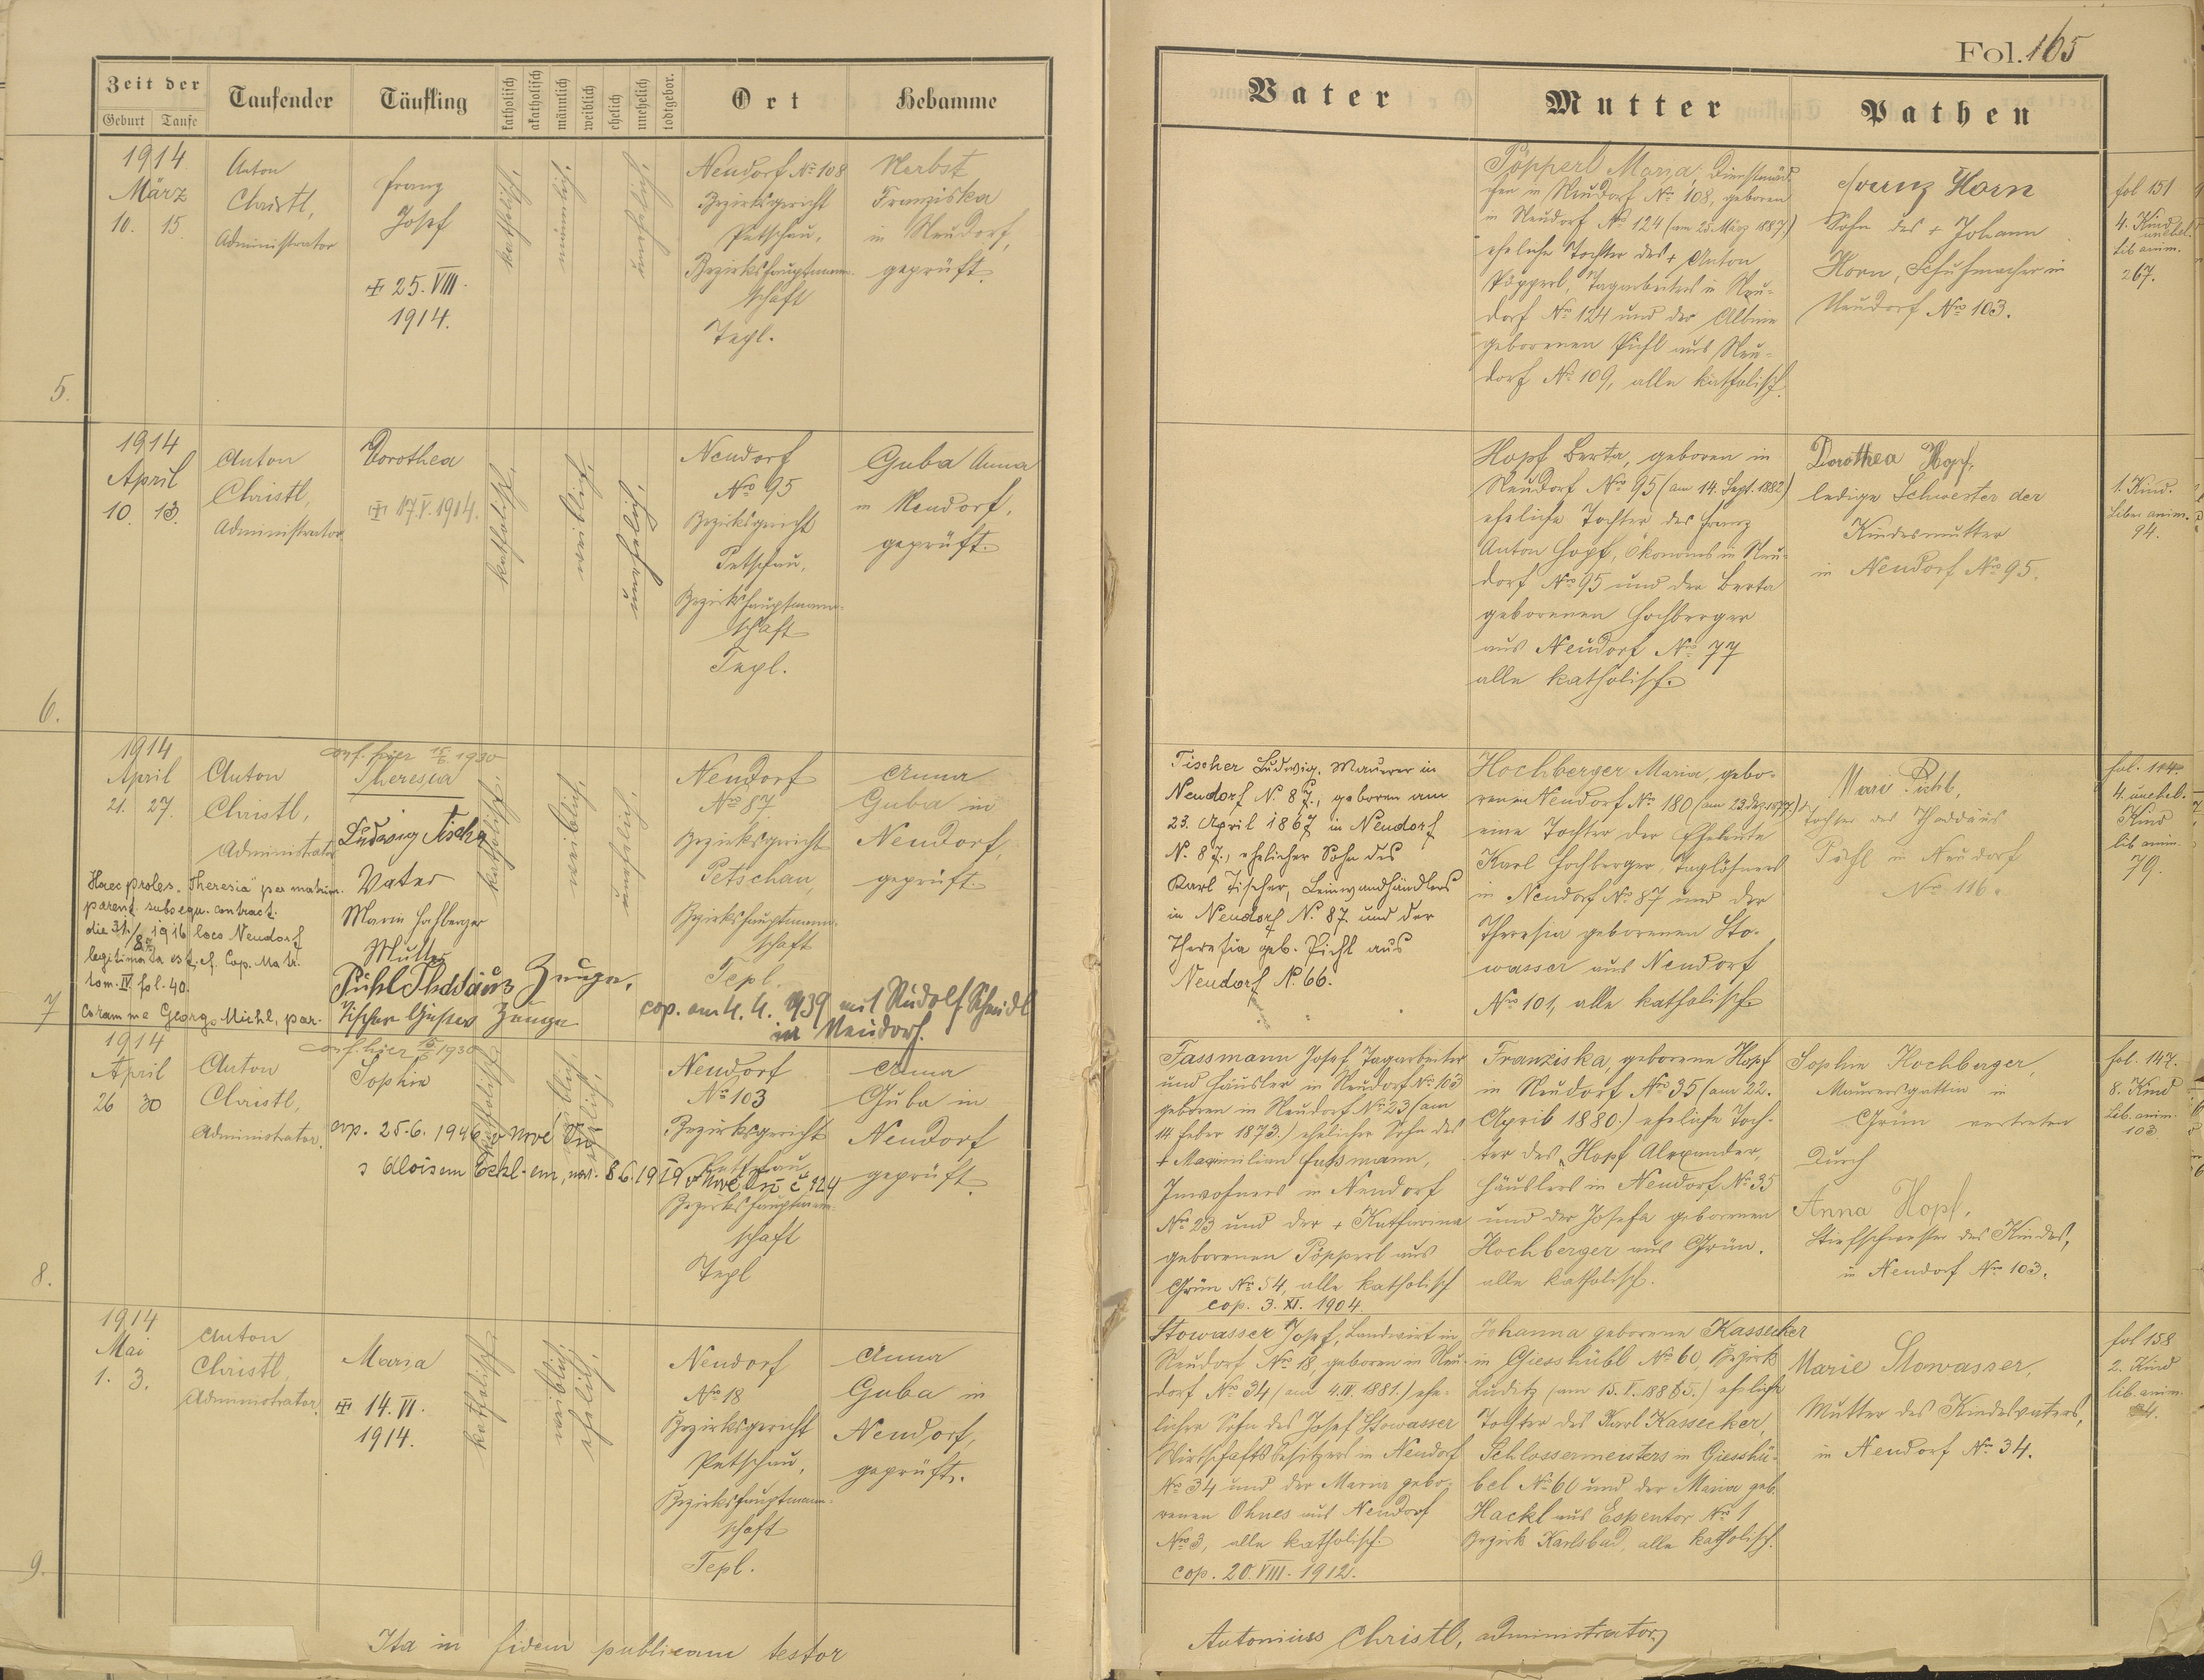 Fol. 165
Zeit der
Geburt
Taufe
Taufender
Täufling
katholisch
akatholisch
männlich
weiblich
ehelich
unehelich
todtgebor.
Ort
Hebamme
Vater
Mutter
Pathen
5.
1914
März
10. 15.
Anton
Christl,
Administrator
Franz
Josef
✠ 25. VIII.
1914.
katholisch.
männlich.
unehelich.
Neudorf No 108
Bezirksgericht
Petschau,
Bezirkshauptmann-
schaft
Tepl.
Herbst
Franziska
in Neudorf,
geprüft.
Pöpperl Maria, Dienstmäd-
chen in Neudorf No 108, geboren
in Neudorf No 124 (am 25. März 1887)
eheliche Tochter des + Anton
Pöpperl, Tagarbeiters in Neu-
dorf No 124 und der Albine
geborenen Pichl aus Neu-
dorf No 109, alle katholisch.
Franz Horn
Sohn des + Johann
Horn, Schuhmacher in
Neudorf Nro 103.
fol 151
4. Kind
unehel.
lib anim.
267.
6.
1914
April
10. 13.
Anton
Christl,
Administrator.
Dorothea
✠ 17. V. 1914.
katholisch.
weiblich.
unehelich.
Neudorf
Nro 95
Bezirksgericht
Petschau,
Bezirkshauptmann-
schaft
Tepl.
Guba Anna
in Neudorf,
geprüft.
Hopf Berta, geboren in
Neudorf Nro 95 (am 14. Sept. 1882)
eheliche Tochter des Franz
Anton Hopf, Ökonoms in Neu-
dorf Nro 95 und der Berta
geborenen Hochberger
aus Neudorf Nro 77
alle katholisch.
Dorothea Hopf,
ledige Schwester der
Kindesmutter
in Neudorf Nro 95.
1. Kind.
Liber anim.
94.
7
1914
April
21. 27.
Anton
Christl,
Administrator
conf. hier 15/6 1930
Theresia
Ludwig Tischer
Vater
Maria Hochberger
Mutter
Pichl Thadäus Zeuge.
Tischer Gustav Zeuge
Haec proles "Theresia" per matrim.
parent. subsequ. contract.
die 31./8. 1916 loco Neudorf
legitimata est, cf. Cop. Matr.
tom. IV. fol. 40.
Coram me Georgo Michl, par.
katholisch.
weiblich.
unehelich.
Neudorf
No 87
Bezirksgericht
Petschau,
Bezirkshauptmann-
schaft
Tepl.
cop. am 4. 4. 1939 mit Rudolf Schmidl
in Neudorf.
Anna
Guba in
Neudorf,
geprüft.
Tischer Ludwig, Maurer in
Neudorf N. 87., geboren am
23. April 1867 in Neudorf
N. 87., ehelicher Sohn des
Karl Tischer, Leinwandhändlers
in Neudorf N. 87. und der
Theresia geb. Pichl aus
Neudorf N. 66.
Hochberger Maria, gebo-
renen Neudorf No 180 (am 23. Dez. 1877)
eine Tochter der Eheleute
Karl Hochberger, Taglöhners
in Neudorf No 87 und der
Theresia geborenen Sto-
wasser aus Neudorf
Nro 101, alle katholisch
Marie Pichl,
Tochter des Thaddäus
Pichl in Neudorf
No 116.
fol. 104.
4. unehel.
Kind
lib anim.
79.
8.
1914
April
26 30
Anton
Christl,
Administrator.
conf. hier 15/6 1930
Sophie
cop. 25.6. 1946 v Nové Vsi
s Aloisem Eckl-em, nar. 8.6.1919 v Nové Vsi č 124
katholisch.
weiblich.
ehelich.
Neudorf
No 103
Bezirksgericht
Petschau
Bezirkshauptmann-
schaft
Tepl
Anna
Guba in
Neudorf
geprüft.
Fassmann Josef, Tagarbeiter
und Häusler in Neudorf No 103
geboren in Neudorf No 23 (am
14 Feber 1873.) ehelicher Sohn des
+ Maximilian Fassmann,
Inwohners in Neudorf
Nro 23 und der + Katharina
geborenen Pöpperl aus
Grün No 54, alle katholisch
cop. 3. XI. 1904.
Franziska, geborene Hopf
in Neudorf Nro 35 (am 22.
April 1880.) eheliche Toch-
ter des Hopf Alexander,
Häuslers in Neudorf No 35
und der Josefa geborenen
Hochberger aus Grün.
alle katholisch.
Sophie Hochberger,
Maurersgattin in
Grün vertreten
durch
Anna Hopf,
Stiefschwester des Kindes,
in Neudorf Nro 103.
fol. 147.
8. Kind
Lib. anim.
103
9.
1914
Mai
1. 3.
Anton
Christl,
Administrator.
Maria
✠ 14. VI.
1914.
katholisch.
weiblich.
ehelich.
Neudorf
Nro 18
Bezirksgericht
Petschau,
Bezirkshauptmann-
schaft
Tepl.
Anna
Guba in
Neudorf,
geprüft.
Stowasser Josef, Landwirt in
Neudorf Nro 18, geboren in Neu-
dorf Nro 34 (am 4. IV. 1881.) ehe-
licher Sohn des Josef Stowasser
Wirtschaftsbesitzers in Neudorf
No 34 und der Maria gebo-
renen Ohnes aus Neudorf
Nro 3, alle katholisch.
cop. 20. VIII. 1912.
Johanna geborene Kassecker
in Giesshübl No 60, Bezirk
Luditz (am 15. I. 1885.) eheliche
Tochter des Karl Kassecker,
Schlossermeisters in Giesshü-
bel No 60 und der Maria geb.
Hackl aus Espentor Nro 1
Bezirk Karlsbad, alle katholisch.
Marie Stowasser,
Mutter des Kindesvaters,
in Neudorf No 34.
fol 158
2. Kind
lib. anim.
Ita in fidem publicam testor
Antonius Christl, administrator